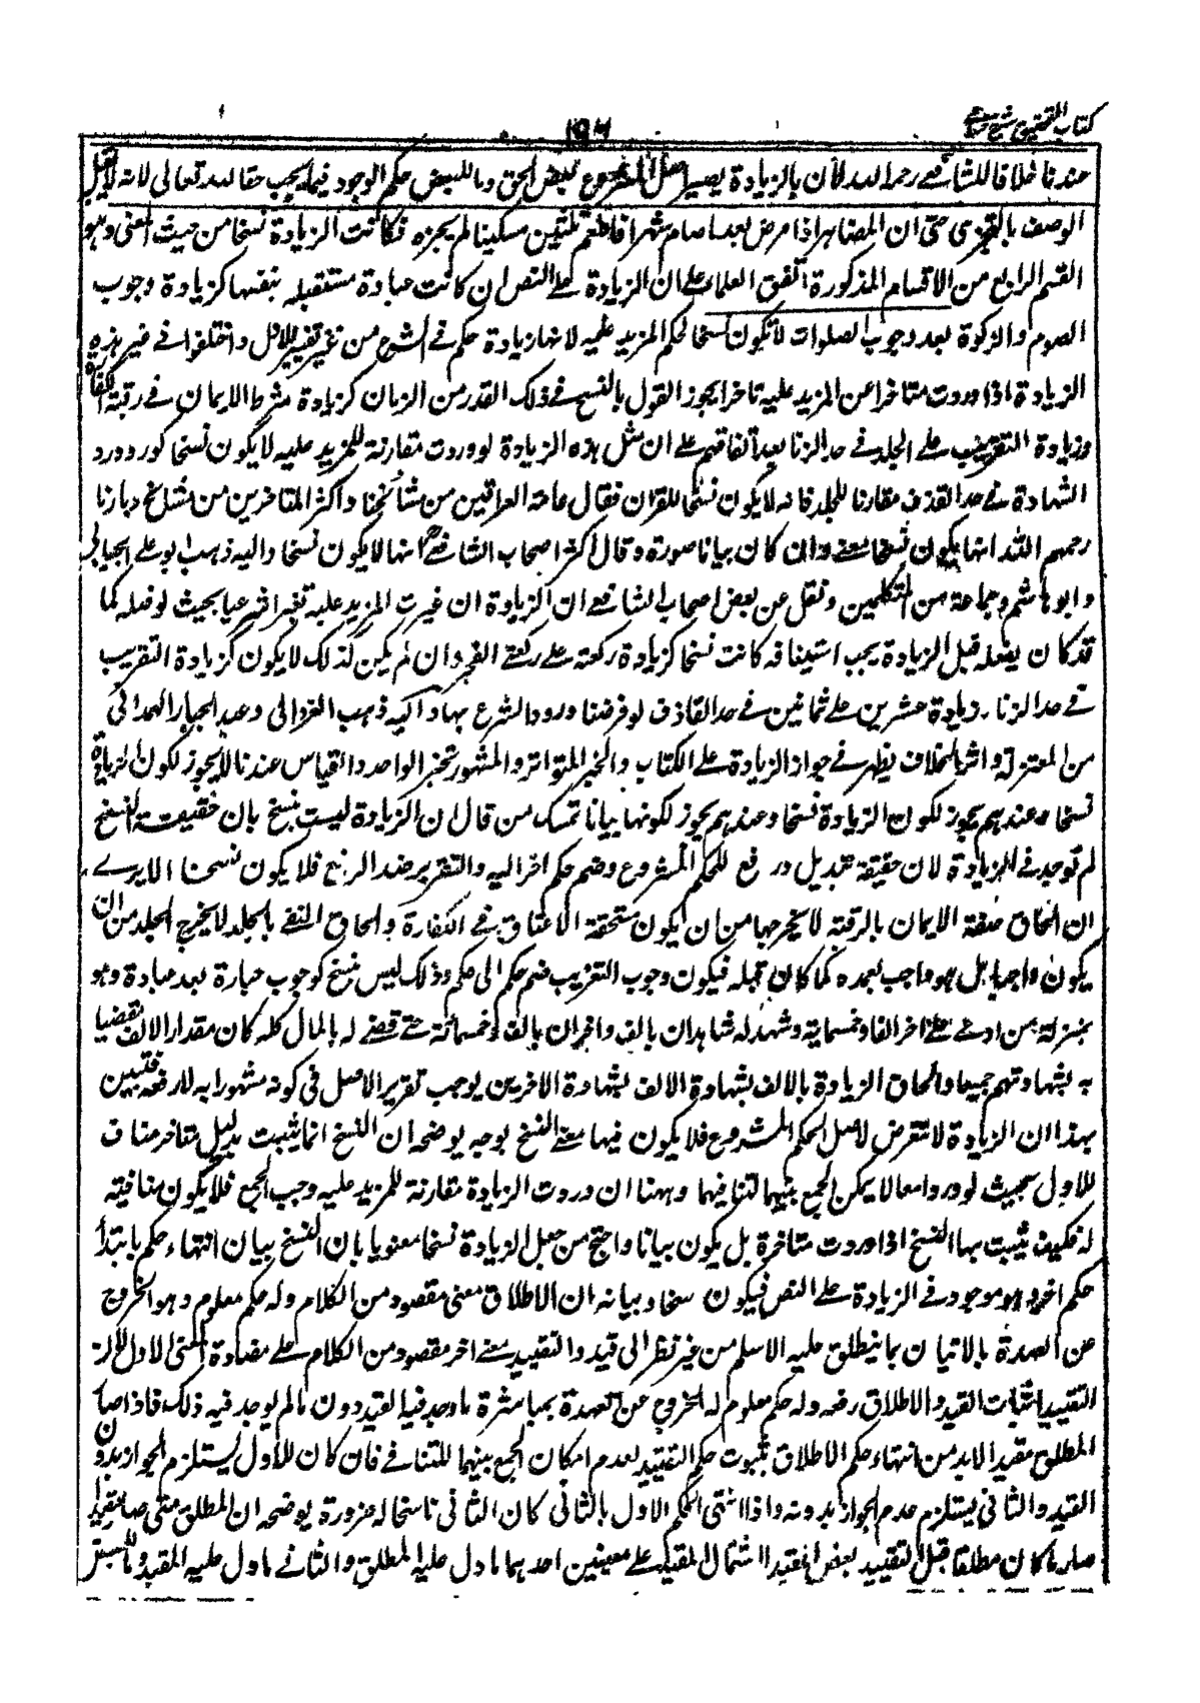 كتاب التحقيق شرح حسامي
١٩٦
عندنا خلافا للشافعي رحمه الله لأن بالزيادة يصير اصل المشروع بعض الحق وما للبعض حكم الوجود فيما يجب حقا لله تعالى لانه لا يقبل
الوصف بالتجزى حتى ان المظاهر اذا مرض بعد ما صام شهرا فاطعم ثلثين مسكينا لم يجزه فكانت الزيادة نسخا من حيث المعنى وهو
القسم الرابع من الاقسام المذكورة اتفق العلماء على ان الزيادة على النص ان كانت عبادة مستقلة بنفسها كزيادة وجوب
الصوم والزكوة بعد وجوب الصلوات لا تكون نسخا لحكم المزيد عليه لانها زيادة حكم في الشرع من غير تغيير للاول واختلفوا في غير هذه
الزيادة اذا وردت متاخرا عن المزيد عليه تاخرا يجوز القول بالنسخ في ذلك القدر من الزمان كزيادة شرط الايمان في رقبة الكفارة
وزيادة التغريب على الجلد في حد الزنا بعد اتفاقهم على ان مثل هذه الزيادة لو وردت مقارنة للمزيد عليه لا يكون نسخا كورود رد
الشهادة في حد القذف مقارنا للجلد فانه لا يكون نسخا للقران فقال عامة العراقين من مشائخنا واكثر المتاخرين من مشائخ ديارنا
رحمهم الله انها يكون نسخا معنى وان كان بيانا صورة وقال اكثر اصحاب الشافعي انها لا يكون نسخا واليه ذهب ابو علي الجبائي
وابو هاشم وجماعة من المتكلمين ونقل عن بعض اصحاب الشافعي ان الزيادة ان غيرت المزيد عليه تغيرا شرعيا بحيث لو فعله كما
قد كان يفعله قبل الزيادة يجب استينافه كانت نسخا كزيادة ركعته على ركعتي الفجر وان لم يكن كذلك لا يكون كزيادة التغريب
في حد الزنا و زيادة عشرين على ثمانين في حد القاذف لو فرضنا ورود الشرع بها واليه ذهب الغزالى وعبد الجبار الهمدانى
من المعتزلة واثر الخلاف يظهر في جواز الزيادة على الكتاب والخبر المتواتر والمشهور بخبر الواحد والقياس عندنا لا يجوز لكون الزيادة
نسخا وعندهم يجوز لكون الزيادة نسخا وعندهم يجوز لكونها بيانا تمسك من قال ان الزيادة ليست بنسخ بان حقيقة النسخ
لم توجد في الزيادة لان حقيقة تبديل ورفع للحكم المشروع وضم حكم اخر اليه والتقرير ضد الرفع فلا يكون نسخا الا يرى
ان الحاق صفة الايمان بالرقبة لا يخرجها من ان يكون مستحقة الاعتاق في الكفارة والحاق النفي بالجلد لا يخرج الجلد من ان
يكون واجبا بل هو واجب بعده كما كان قبله فيكون وجوب التغريب ضم حكم الى حكم وذلك ليس بنسخ كوجوب عبادة بعد عبادة وهو
بمنزلة من ادعى على اخر الفا وخمسماية وشهد له شاهدان بالف واخران بالف وخمسمائة حتى قضى له بالمال كله كان مقدار الالف مقضيا
به بشهادتهم جميعا والحاق الزيادة بالالف بشهادة الالف بشهادة الاخرين يوجب تقرير الاصل في كونه مشهورا به لا رفعه فتبين
بهذا ان الزيادة لا تتعرض لاصل الحكم المشروع فلا يكون فيها معنى النسخ بوجه يوضحه ان النسخ انما يثبت بدليل متاخر مناف
للاول بحيث لو وردا معا لا يمكن الجمع بينهما لتنافيهما وههنا ان وردت الزيادة مقارنة للمزيد عليه وجب الجمع فلا يكون منافيته
له فكيف يثبت بها النسخ اذا وردت متاخرة بل يكون بيانا واحتج من جعل الزيادة نسخا معنويا بان النسخ بيان انتهاء حكم بابتداء
حكم اخر وهو موجود في الزيادة على النص فيكون نسخا وبيانه ان الاطلاق معنى مقصود من الكلام وله حكم معلوم وهو الخروج
عن العهدة بالاتيان بما ينطلق عليه الاسم من غير نظر الى قيد والتقييد معنى اخر مقصود من الكلام على مضادة المعنى الاول لان
التقييد اثبات القيد والاطلاق رفعه وله حكم معلوم له الخروج عن العهدة بمباشرة ما وجد فيه القيد دون ما لم يوجد فيه ذلك فاذا صار
المطلق مقيدا لا بد من انتهاء حكم الاطلاق بثبوت حكم التقييد لعدم امكان الجمع بينهما للتنافى فان كان للاول يستلزم الجواز بدون
القيد والثاني يستلزم عدم الجواز بدونه واذا انتهى الحكم الاول بالثانى كان الثانى ناسخا له ضرورة يوضحه ان المطلق متى صار مقيدا
صار ما كان مطلقا قبل التقييد بعض المقيد لاشتمال المقيد على معنيين احدهما ما دل عليه المطلق والثاني ما دل عليه المقيد وما للبعض